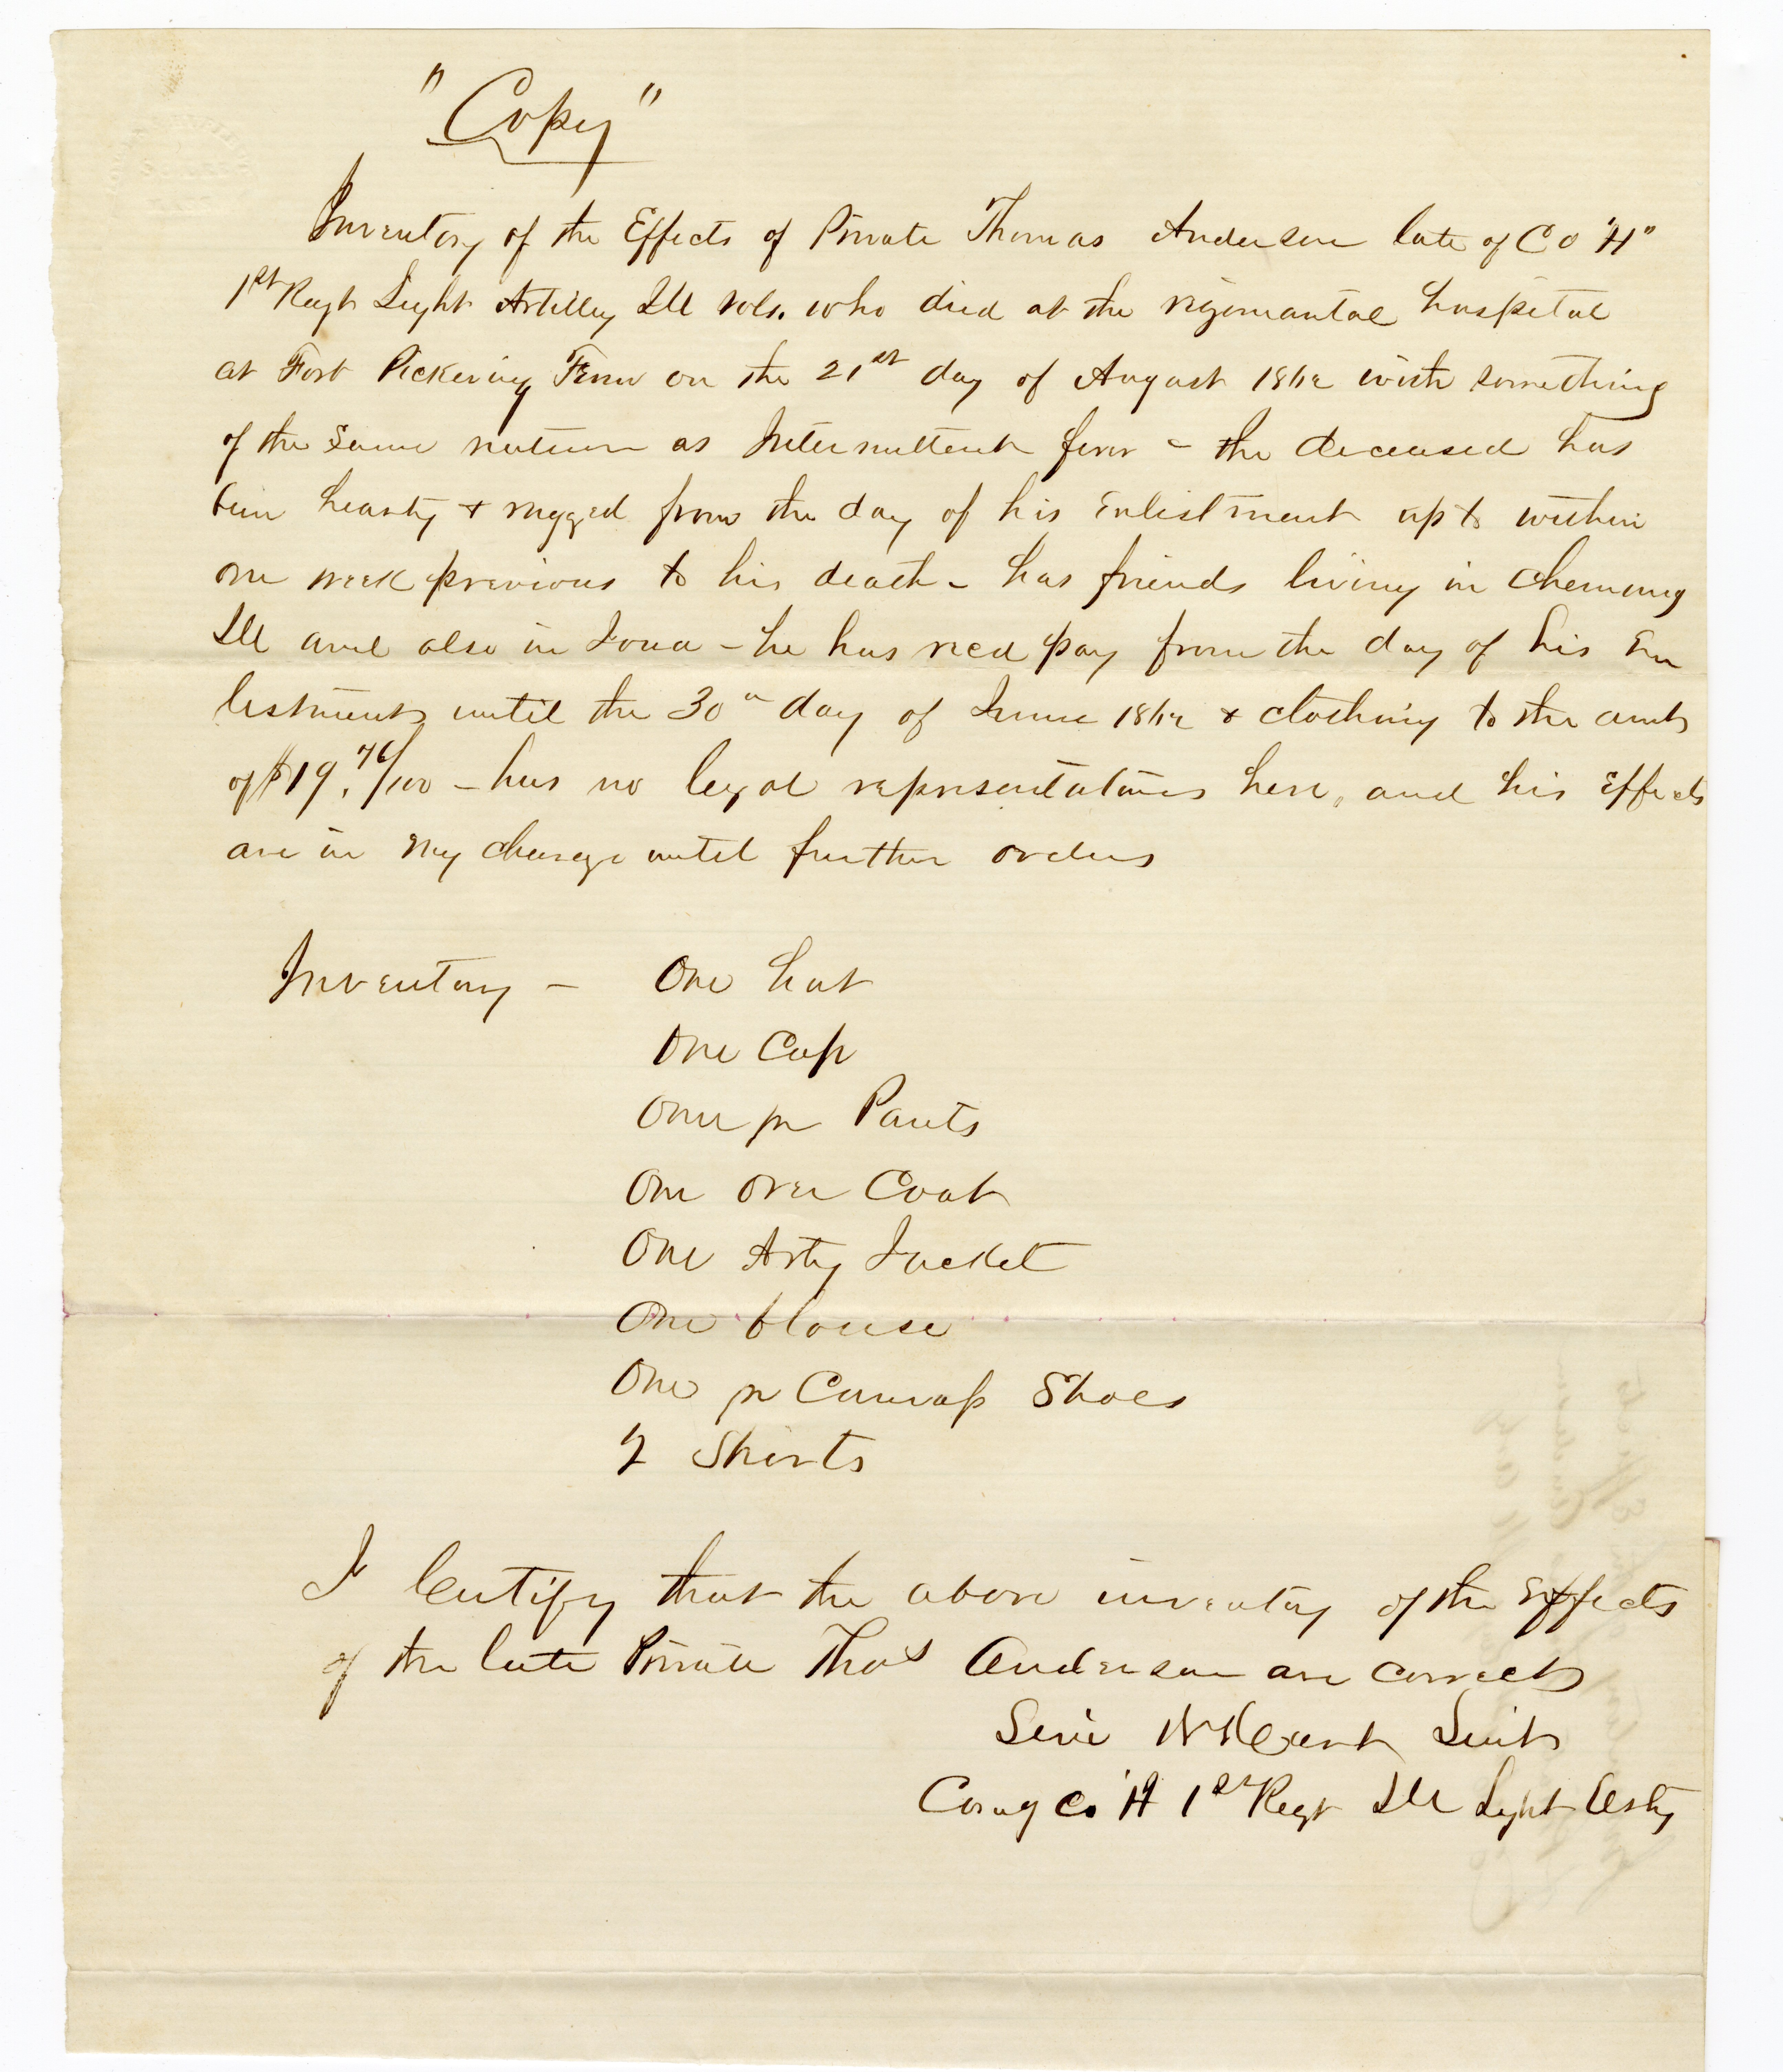 "Copy"
Inventory of the Effects of Private Thomas Anderson late of Co "H"
1st Regt Light Artilley Ill Vols. who died at the rigomantal hospital
at Fort Pickering Tenn on the 21st day of August 1862 with something
of the same nature as Intermittent fever - the deceased has
bin hearty + rugged from the day of his Enlistment up to within
one week previous to his death - has friends living in Chemung
Ill and also in Iowa - he has recd pay from the day of his En
listment until the 30th day of June 1862 & clothing to the amt
of $19.76/100 - has no legal representatives here, and his Effects
are in my charge until further orders
Inventory - One hat
One Cap
One pr Pants
One over Coat
One Arty Jacket
One blouse
One pr Canvass Shoes
2 Shirts
I Certify that the above inventory of the Effects
of the late Private Thos Anderson are correct
Levi W Hart Leiut
Comg Co H 1st Regt Ill Light Arty